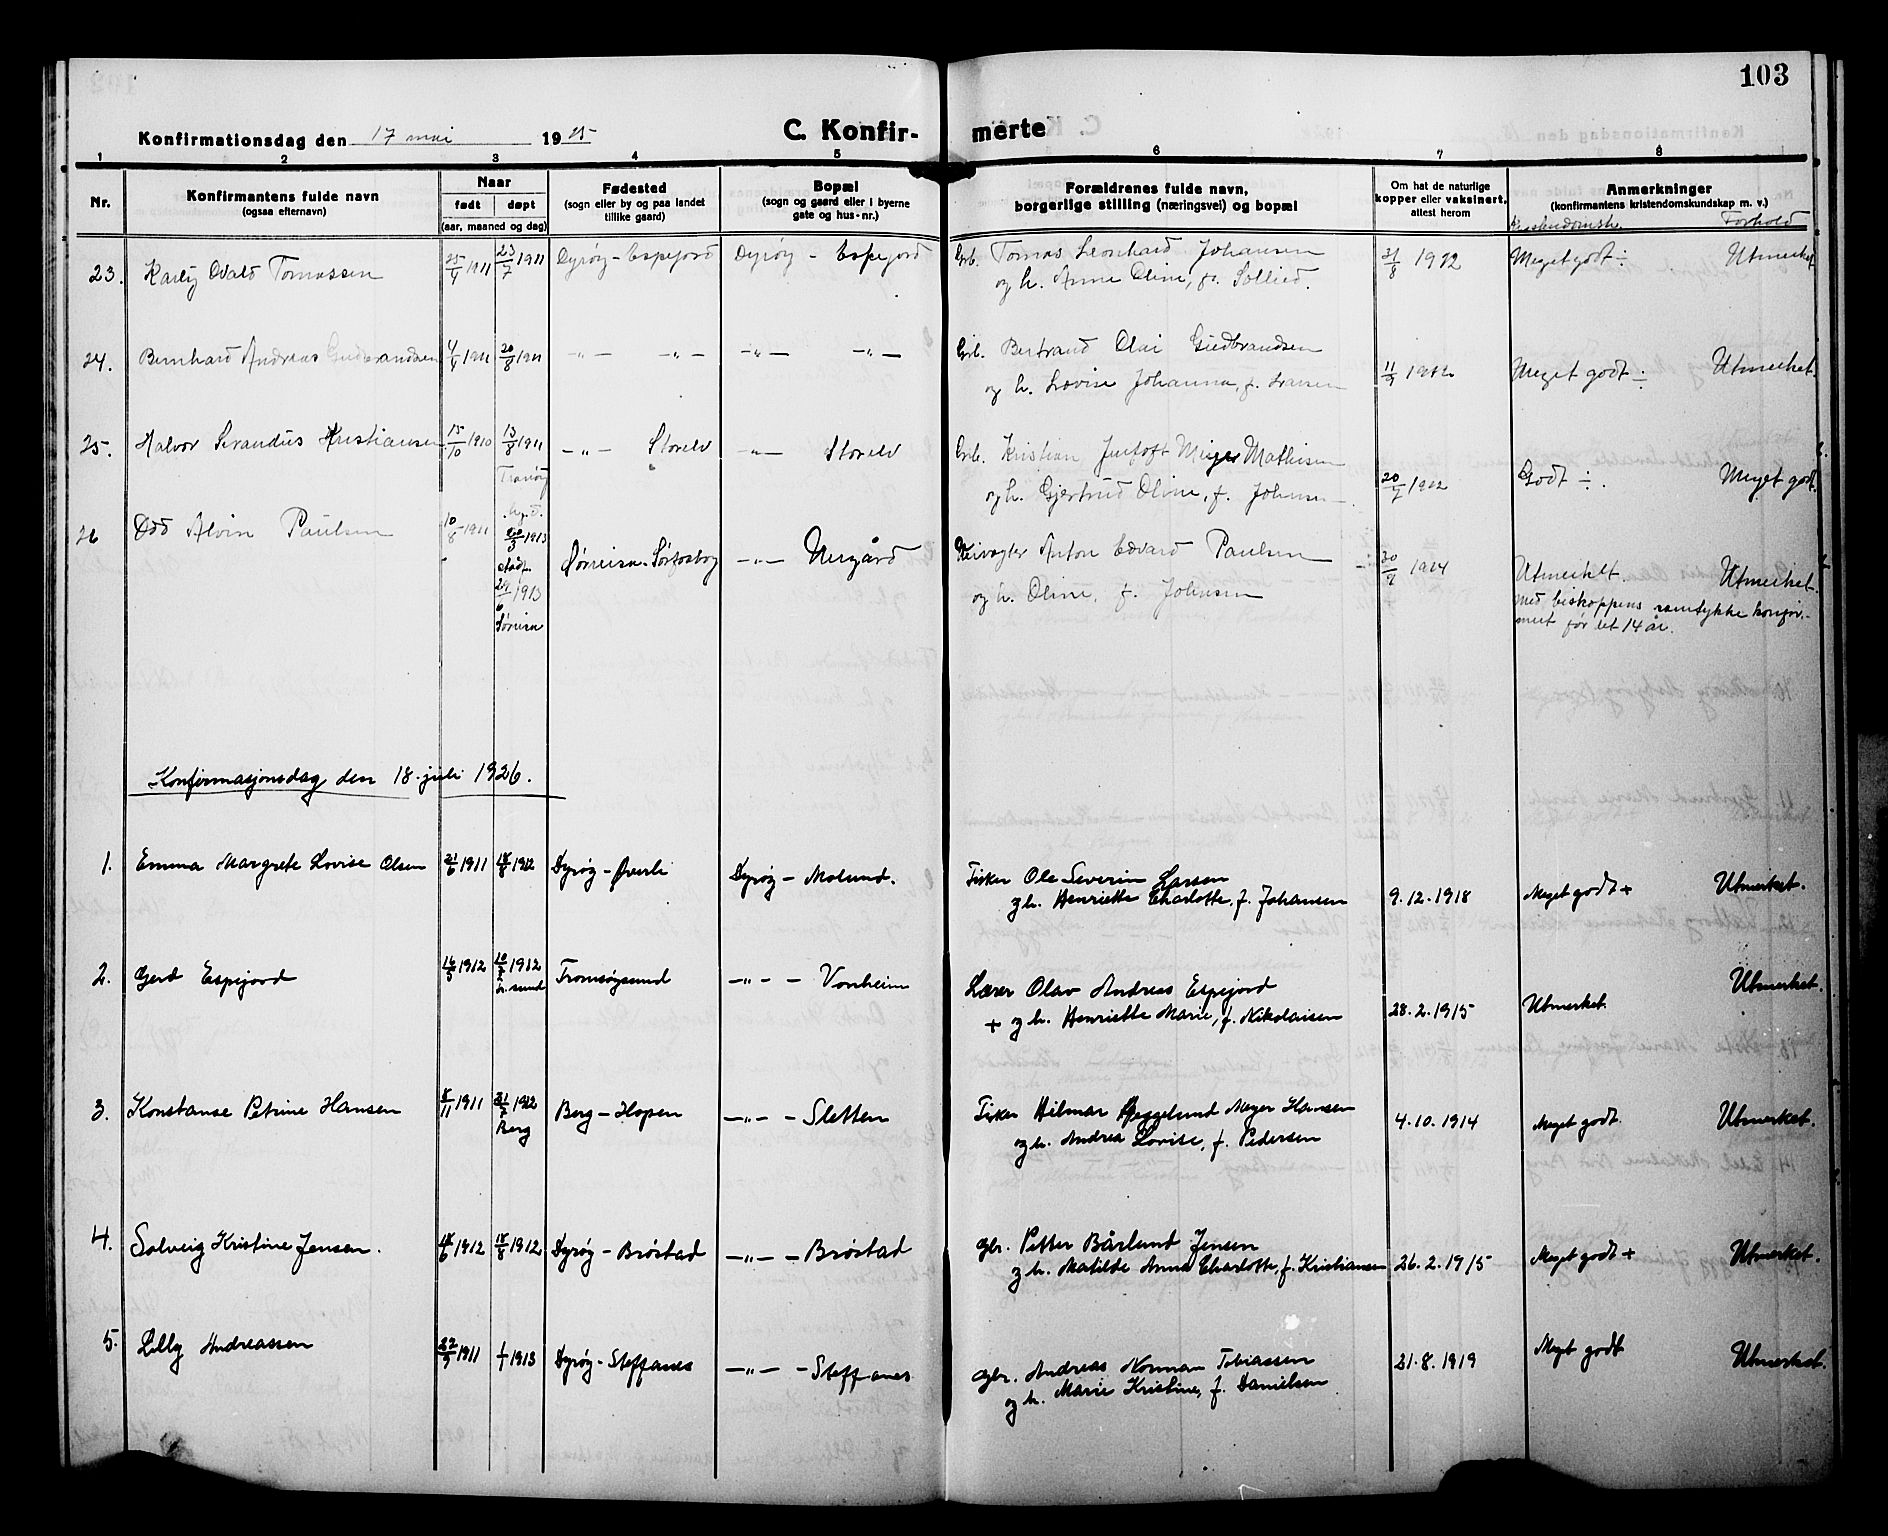 103
Konfirmationsdag den 17 mai 1925
C. Konfir- merte
1 2 3 4 5 6 7 8
Nr.
Konfirmantens fulde navn
(ogsaa efternavn)
Naar
født døpt
(aar, maaned og dag)
Fødested
(sogn eller by og paa landet
tillike gaard)
Bopæl
(sogn og gaard eller i byerne
gate og hus-nr.)
Forældrenes fulde navn,
borgerlige stilling (næringsvei) og bopæl
Om hat de naturlige
kopper eller vaksinert,
attest herom
Anmerkninger
(konfirmantens kristendomskundskap m. v.)
Forhold
23. Karly Odald Tomassen 25/4 1911 23/7 1911 Dyrøy - Espejord Dyrøy - Espejord Grb. Tomas Leonhard Johansen 21/8 1922 Meget godt ÷ Utmerket
og h. Anne Oline, f. Sollied.
24. Bernhard Andreas Gudbrandsen 4/4 1911 20/8 1911 -"- -"- -"- -"- Grb. Bertrand Olai Gudbrandsen 11/9 1922 Meget godt ÷ Utmerket.
og h. Lovise Johanna, f. Larsen
25. Halvor Strandus Kristiansen 15/10 1910 13/8 1911 -"- Storelv -"- Storelv Grb. Kristian Meyer Mathisen 20/7 1922 Godt ÷. Meget godt.
Tranøy
og h. Gjertrud Oline, f. Johnsen
26 Odd Alvin Paulsen 10/8 1911 Sørreisa - -"- Nergård Anton Edvard Paulsen 1924 Utmerket. Utmerket.
1913
stadf.
29/6 1913
Sørreisa
og h. Oline, f. Johnsen
Med biskoppens samtykke konfir-
mert før det 14 år.
Konfirmasjonsdag den 18. juli 1926.
1. Emma Margrete Lovise Olsen 21/6 1911 18/8 1912 Dyrøy - Øverli Dyrøy - Molund. Fisker Ole Severin Larsen 9.12.1918 Meget godt + Utmerket.
og h. Henriette Charlotte, f. Johansen
2. Gerd Espejord 16/5 1912 1912 Tromsøysund -"- - Vonheim Lærer Olav Andreas Espejord 28.2.1915 Utmerket Utmerket.
+ og h. Henriette Marie, f. Nikolaisen
3. Konstanse Petrine Hansen 8/11 1911 1912 Berg - Hopen -"- - Sletten Fisker Hilmar Heggelund Meyer Hansen 4.10.1914 Meget godt. Utmerket.
Berg
og h. Andrea Lovise, f. Pedersen
4. Solveig Kristine Jensen. 18/6 1912 18/8 1912 Dyrøy - Brøstad -"- - Brøstad Gbr. Petter Bårlund Jensen 26.2.1915 Meget godt + Utmerket.
og h. Matilde Anna Charlotte, f. Kristiansen
5. Lilly Andreassen 22/9 1911 1/1 1913 Dyrøy - Steffanes -"- - Steffanes Gbr. Andreas Norman Tobiassen 21.8.1919 Meget godt Utmerket.
og h. Marie Kristine, f. Danielsen